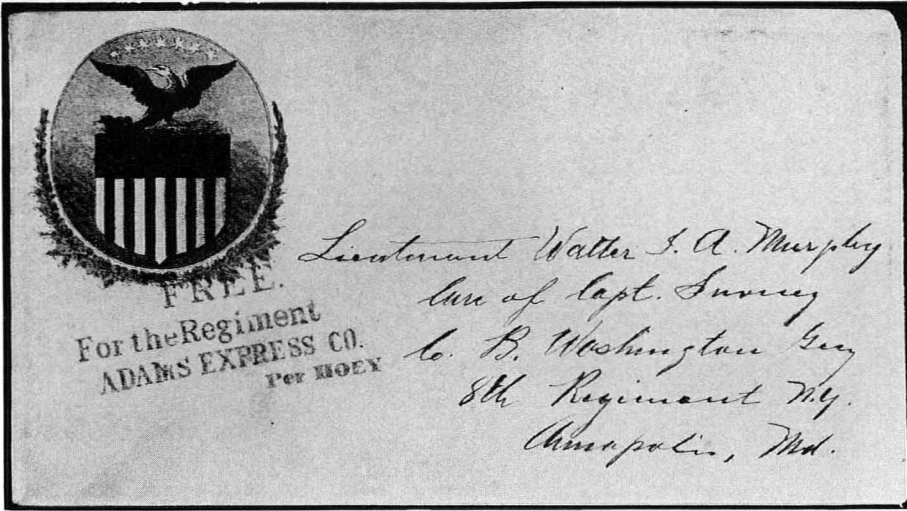 FREE.
For the Regiment
ADAMS EXPRESS CO.
Per HOEY
Lieutenant Walter I. A. Murphy
Care of Capt.
Co. B. Washington
8th Regiment N.Y.
Annapolis, Md.